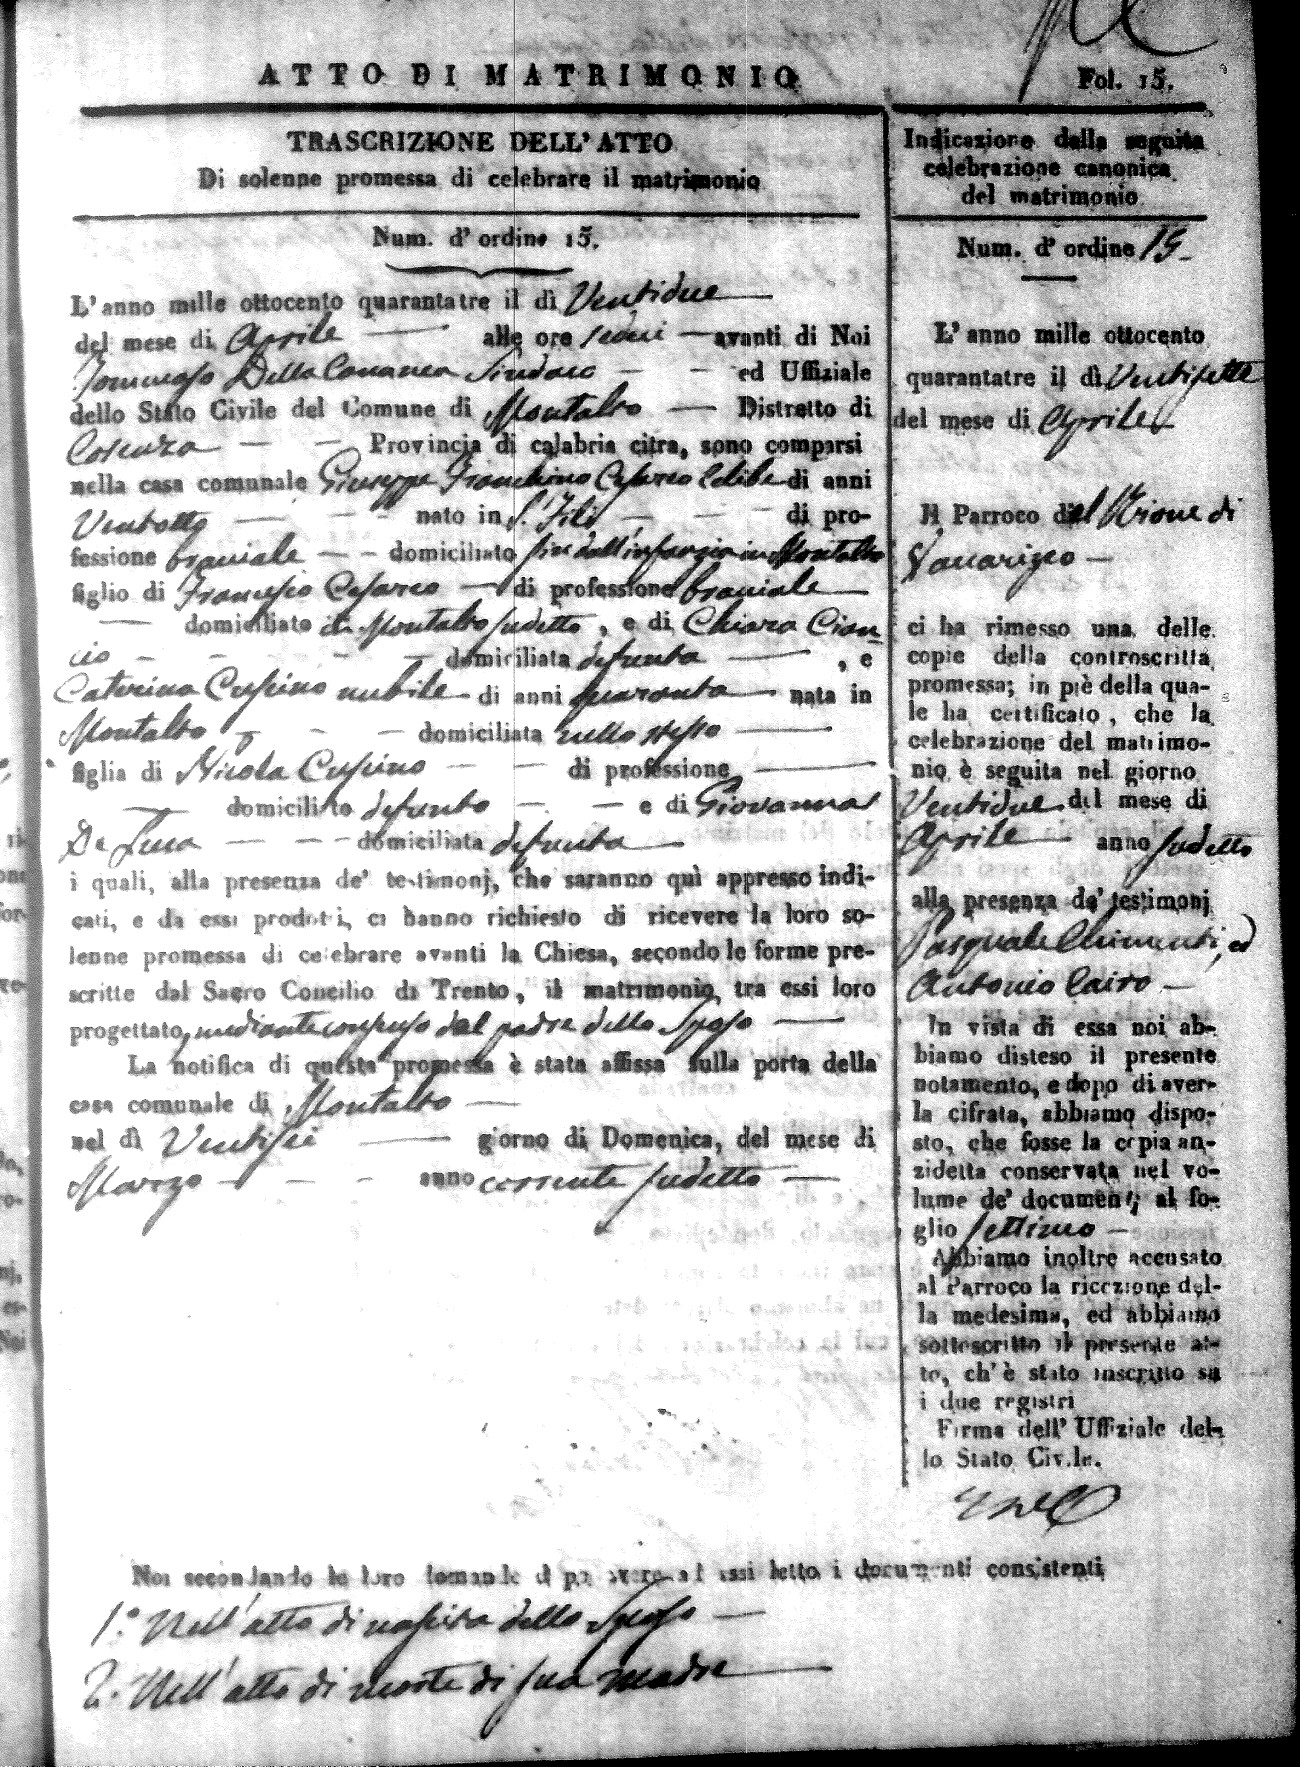 ATTO DI MATRIMONIO
Fol. 15.
TRASCRIZIONE DELL' ATTO
Di solenne promessa di celebrare il matrimonio
Num. d' ordine 15.
L' anno mille ottocento quarantatre il dì Ventidue
del mese di Aprile alle ore sedici avanti di Noi
Tommaso Della Cananea Sindaco ed Uffiziale
dello Stato Civile del Comune di Montalto Distretto di
Cosenza Provincia di calabria citra, sono comparsi
nella casa comunale Giuseppe Francesco Cesareo Celibe di anni
Ventotto nato in S. Fili di pro-
fessione braciale domiciliato fin dall'infanzia in Montalto
figlio di Francesco Cesareo di professione braciale
domiciliato in Montalto sudetto, e di Chiara Cian
cio domiciliata defunta, e
Caterina Crispino nubile di anni quaranta nata in
Montalto domiciliata nello stesso
figlia di Nicola Crispino di professione
domiciliato defunto e di Giovanna
De Luca domiciliata defunta
i quali, alla presenza de' testimonj, che saranno quì appresso indi-
cati, e da essi prodotti, ci hanno richiesto di ricevere la loro so-
lenne promessa di celebrare avanti la Chiesa, secondo le forme pre-
scritte dal Sacro Concilio di Trento, il matrimonio tra essi loro
progettato, mediante consenso del padre dello Sposo
La notifica di questa promessa è stata affissa sulla porta della
casa comunale di Montalto
nel dì Ventisei giorno di Domenica, del mese di
Marzo anno corrente sudetto
Noi secondando le loro domande d
letto i documenti consistenti
1.° Nell'atto di nascita dello Sposo
2. Nell'atto di morte di sua madre
Indicazione della seguita
celebrazione canonica
del matrimonio
Num. d' ordine 15
L' anno mille ottocento
quarantatre il dì Ventisette
del mese di Aprile
Il Parroco del Rione di
Vaccarizzo
ci ha rimesso una delle
copie della controscritta
promessa; in piè della qua-
le ha certificato, che la
celebrazione del matrimo-
nio è seguita nel giorno
Ventidue del mese di
Aprile anno sudetto
alla presenza de' testimonj
Pasquale Chimenti, ed
Antonio Cairo
In vista di essa noi ab-
biamo disteso il presente
notamento, e dopo di aver-
la cifrata, abbiamo dispo-
sto, che fosse la copia an-
zidetta conservata nel vo-
lume de' documenti al fo-
glio settimo
Abbiamo inoltre accusato
al Parroco la ricezione del-
la medesima, ed abbiamo
sottoscritto il presente at-
to, ch' è stato inscritto su
i due registri
Firma dell' Uffiziale del-
lo Stato Civile.